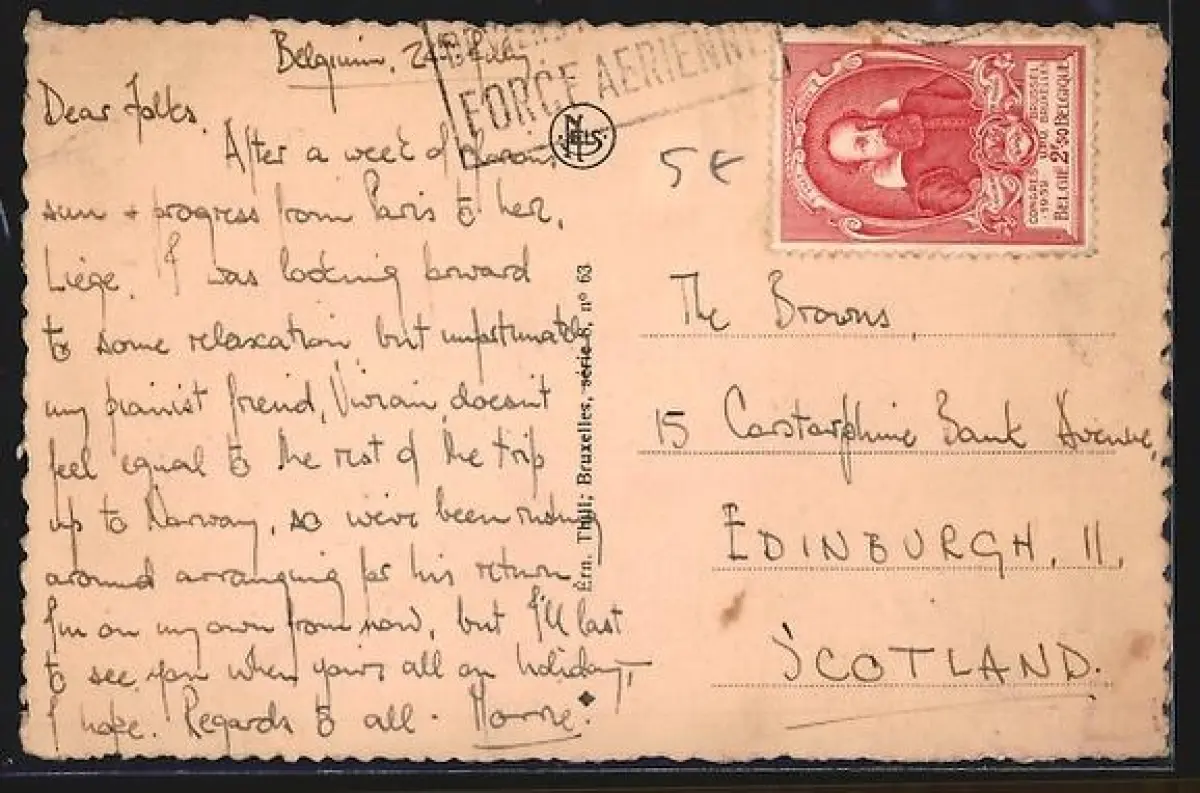 Belgium,
Dear Folks,
After a week of
sun + progress from Paris to here,
Liège, I was looking forward
to some relaxation but unfortunately
my pianist friend, Vivian, doesn't
feel equal to the rest of the trip
up to Norway, so we've been rushing
around arranging for his return.
I'm on my own from now, but I'll last
to see you when you're all on holiday,
I hope. Regards to all.
FORCE AERIENNE
NELS
Ern. Thill, Bruxelles, série 8, n° 63
5€
CONGRES UPU BRUSSEL
1952 BRUXELLES
BELGIE 2F50 BELGIQUE
The Browns,
15 Corstorphine Bank Avenue,
EDINBURGH, 11,
SCOTLAND.